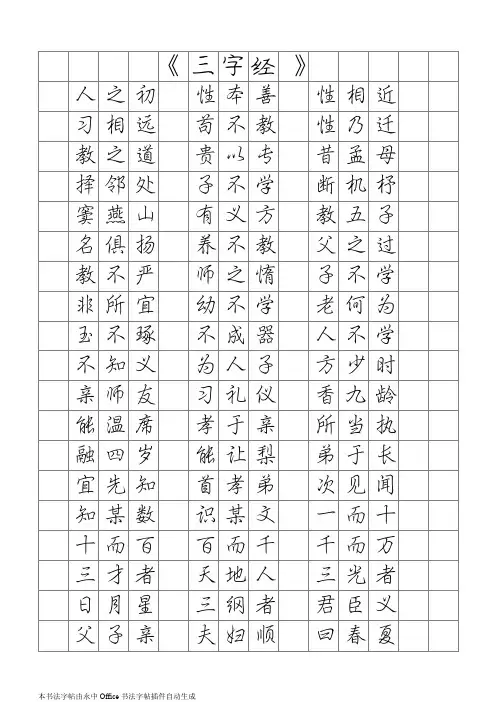 《三字经》
人之初 性本善 性相近
习相远 苟不教 性乃迁
教之道 贵以专 昔孟母
择邻处 子不学 断机杼
窦燕山 有义方 教五子
名俱扬 养不教 父之过
教不严 师之惰 子不学
非所宜 幼不学 老何为
玉不琢 不成器 人不学
不知义 为人子 方少时
亲师友 习礼仪 香九龄
能温席 孝于亲 所当执
融四岁 能让梨 弟于长
宜先知 首孝弟 次见闻
知某数 识某文 一而十
十而百 百而千 千而万
三才者 天地人 三光者
日月星 三纲者 君臣义
父子亲 夫妇顺 曰春夏
本书法字帖由永中Office书法字帖插件自动生成